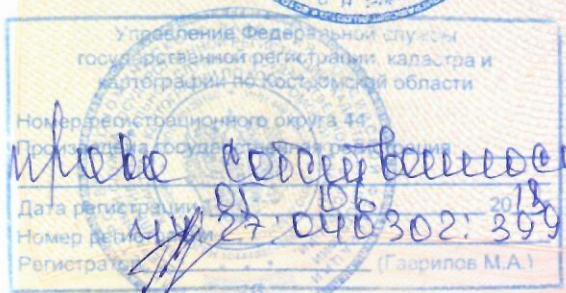 Управление Федеральной службы
государственной регистрации, кадастра и
картографии по Костромской области
Номер регистрационного округа 44
Произведена государственная регистрация
права собственнос
Дата регистрации 20
Номер регис 27:040302:399
Регистратор (Гаврилов М.А.)